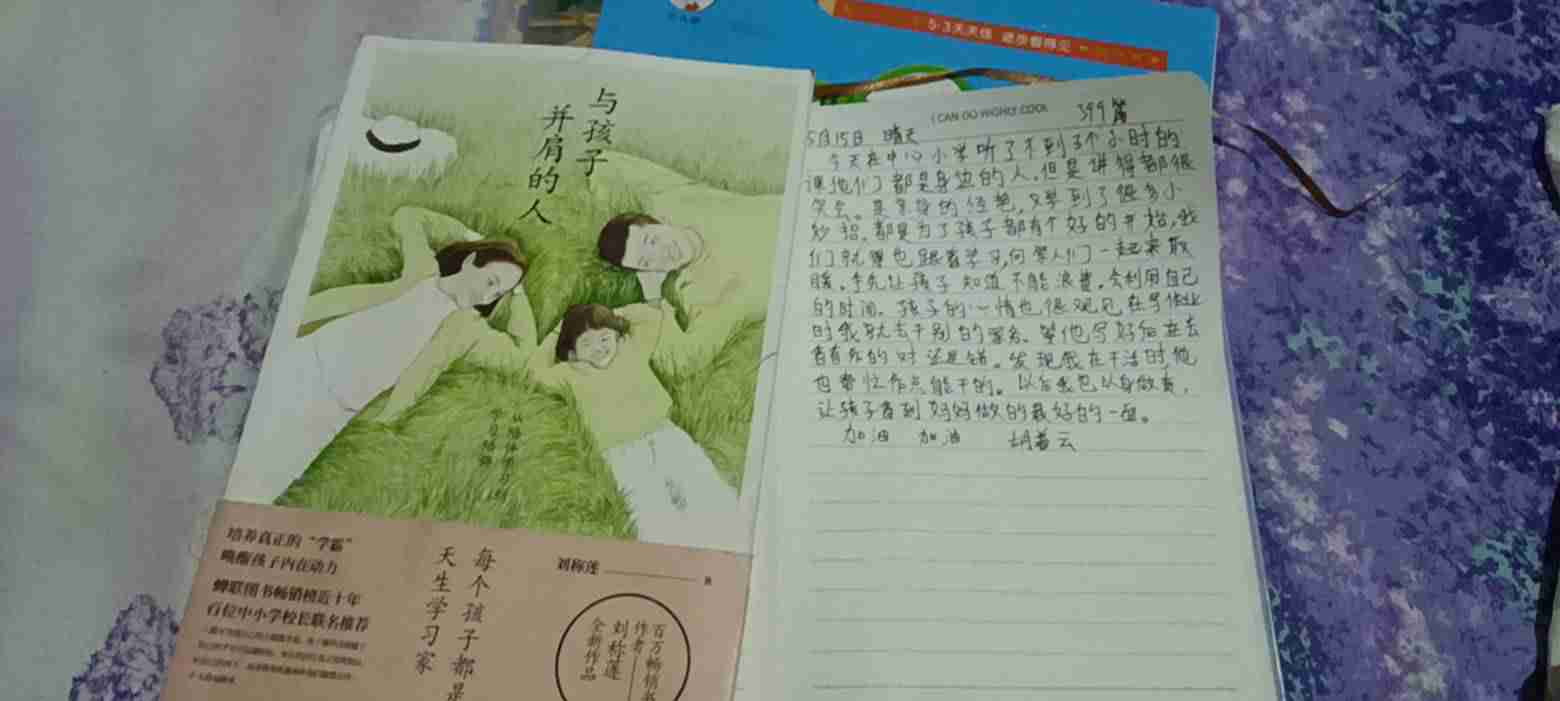 5·3天天练
与孩子
并肩的人
从陪伴学习到
学习陪伴
培养真正的“学霸”
唤醒孩子内在动力
蝉联图书畅销榜近十年
百位中小学校长联名推荐
每个孩子都是
天生学习家
刘称莲
著
百万畅销书
作者
刘称莲
全新作品
I CAN DO HIGHLY COOL
399篇
5月15日 晴天
今天在中心小学听了不到3个小时的
课他们都是身边的人,但是讲得都很
又学到了很多小
妙招,都是为了孩子都有个好的开始,我
们就要也跟着学习,向学人们一起来取
暖。李先让孩子知道不能浪费,会利用自己
的时间。孩子的一情也很观见在写作业
时我就去干别的家务,等他写好后在去
看看写的对还是错。发现我在干活时他
也帮忙作点能干的。以后我也以身做责,
让孩子看到妈妈做的最好的一面。
加油 加油